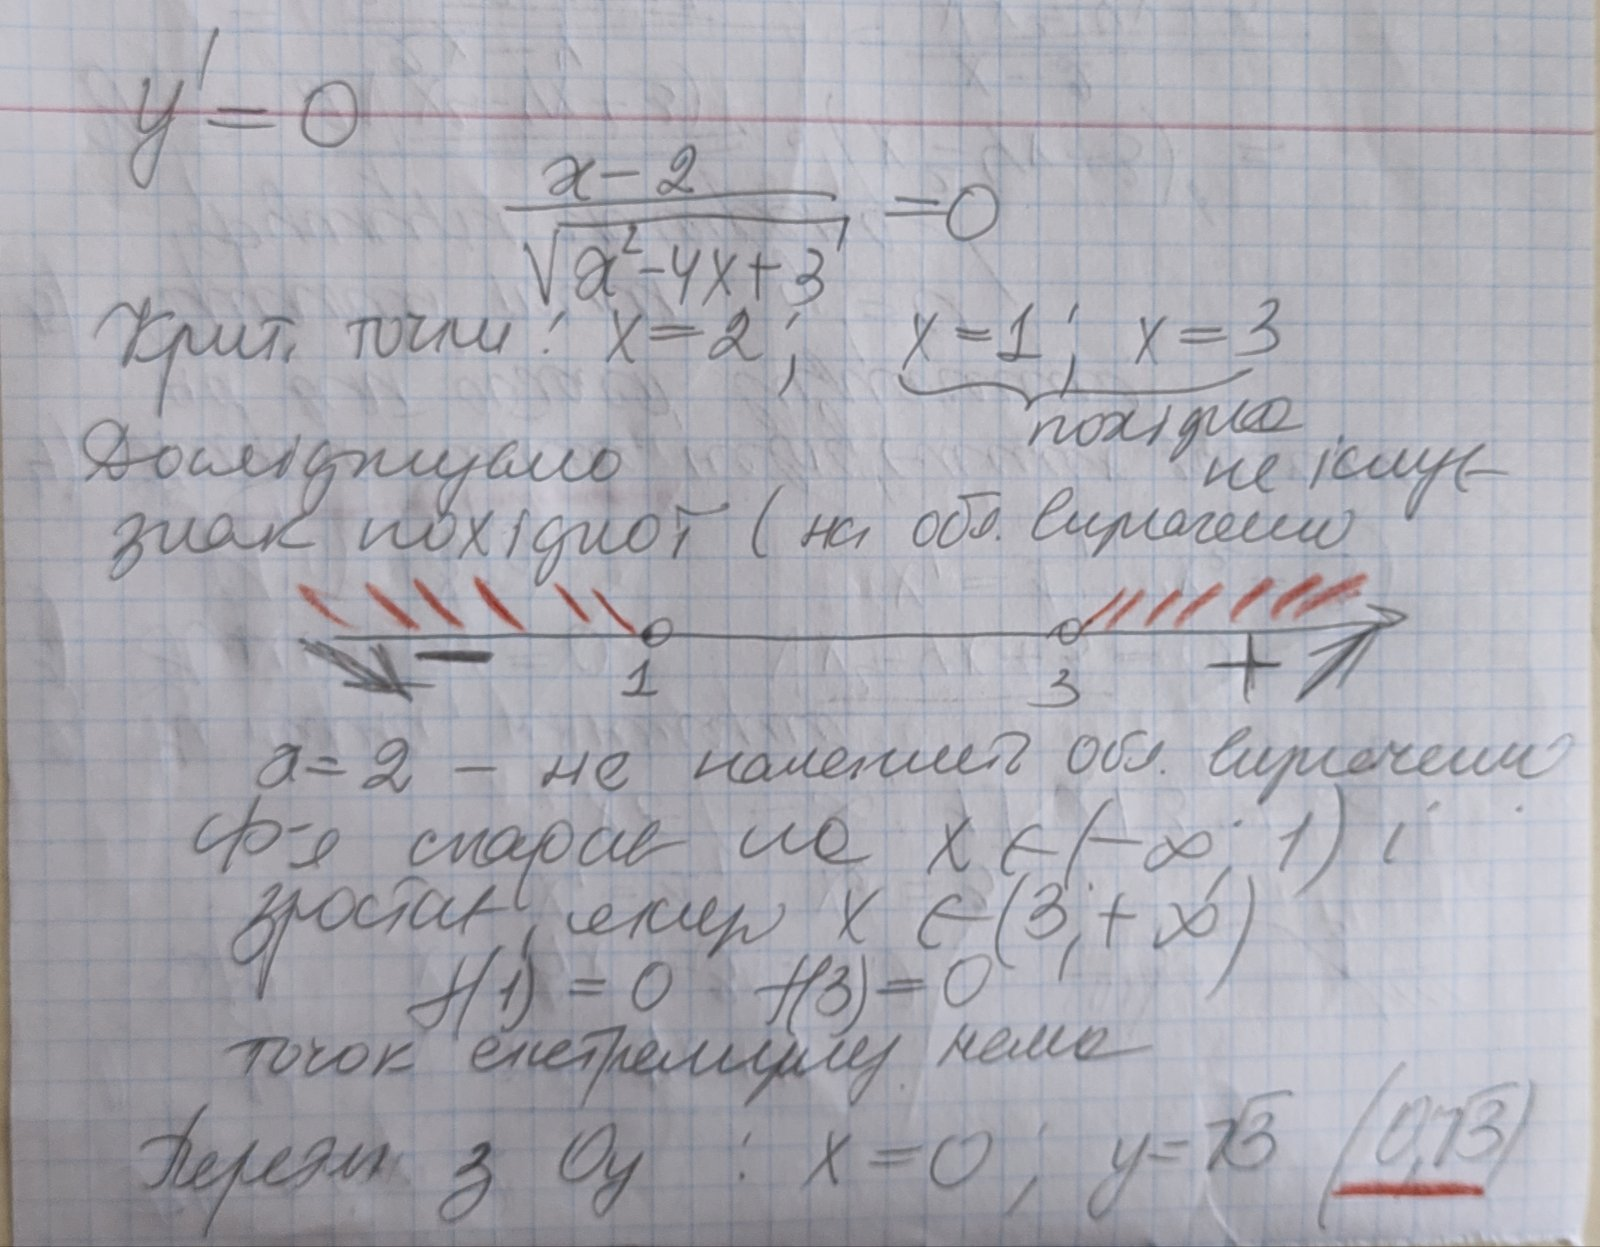 y' = 0
x-2 / √x²-4x+3 = 0
Крит. точки: x=2; x=1; x=3
похідна
не існує
Досліджуємо
знак похідної (на обл. визначення
1 − 3 +
x=2 - не належить обл. визначення
Ф-я спадає на x∈(-∞; 1) і
зростає, якщо x∈(3; +∞)
f(1) = 0 f(3) = 0
точок екстремуму нема
Перетин з Oy: x=0; y=√3 (0,√3)